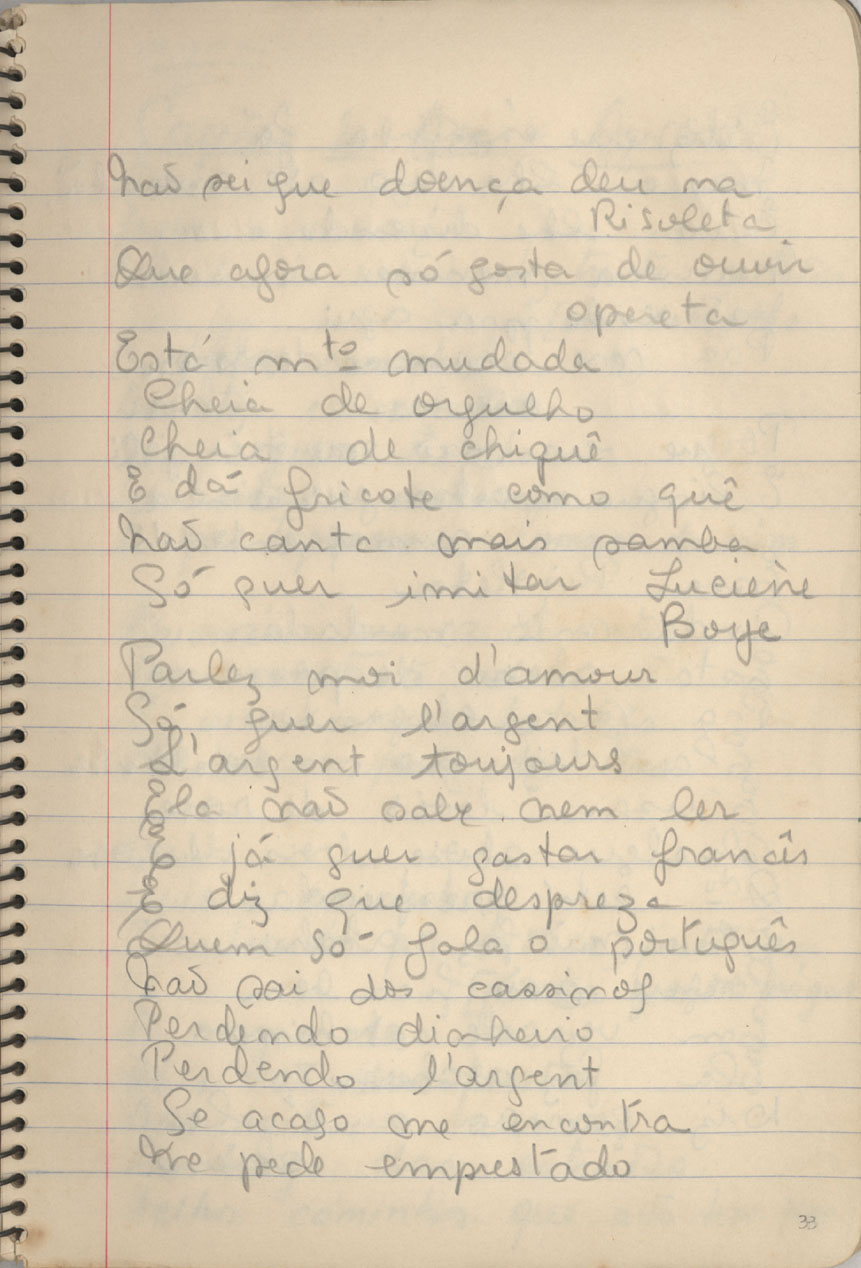 Não sei que doença deu na
Risoleta
Que agora só gosta de ouvir
opereta
Está mtº mudada
Cheia de orgulho
Cheia de chiquê
E dá fricote como quê
Não canta mais samba
Só quer imitar Luciene
Boye
Parlez moi d'amour
Só quer l'argent
L'argent toujours
Ela não sabe nem ler
E já quer gastar francês
E diz que despreza
Quem só fala o português
Não sai dos cassinos
Perdendo dinheiro
Perdendo l'argent
Se acaso me encontra
Me pede emprestado
33